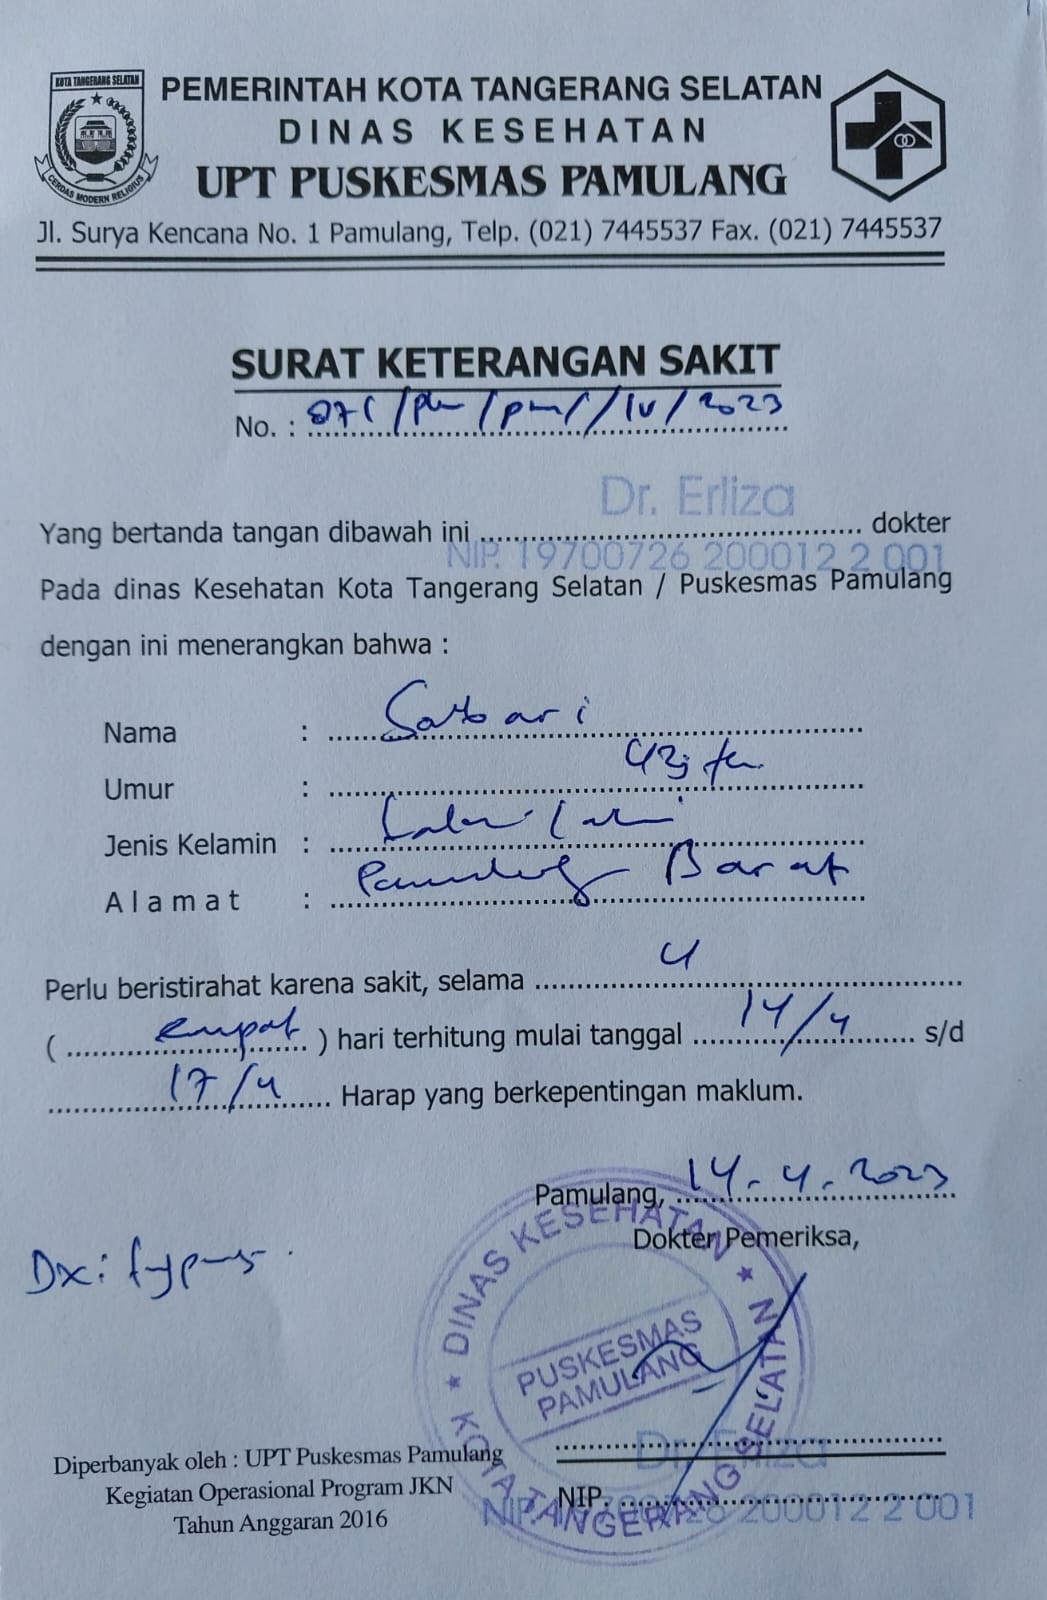 KOTA TANGERANG SELATAN
CERDAS MODERN RELIGIUS
PEMERINTAH KOTA TANGERANG SELATAN
DINAS KESEHATAN
UPT PUSKESMAS PAMULANG
Jl. Surya Kencana No. 1 Pamulang, Telp. (021) 7445537 Fax. (021) 7445537
SURAT KETERANGAN SAKIT
No. : /IV/2023
Dr. Erliza
Yang bertanda tangan dibawah ini dokter
NIP. 19700726 200012 2 001
Pada dinas Kesehatan Kota Tangerang Selatan / Puskesmas Pamulang
dengan ini menerangkan bahwa :
Nama :
Umur :
Jenis Kelamin : Laki-laki
Alamat : Pamulang Barat
Perlu beristirahat karena sakit, selama 4
( empat ) hari terhitung mulai tanggal 14/4 s/d
17/4 Harap yang berkepentingan maklum.
Pamulang, 14-4-2023
Dokter Pemeriksa,
Dx: typus
DINAS KESEHATAN
PUSKESMAS
PAMULANG
KOTA TANGERANG SELATAN
Dr. Erliza
NIP. 19700726 200012 2 001
Diperbanyak oleh : UPT Puskesmas Pamulang
Kegiatan Operasional Program JKN
Tahun Anggaran 2016